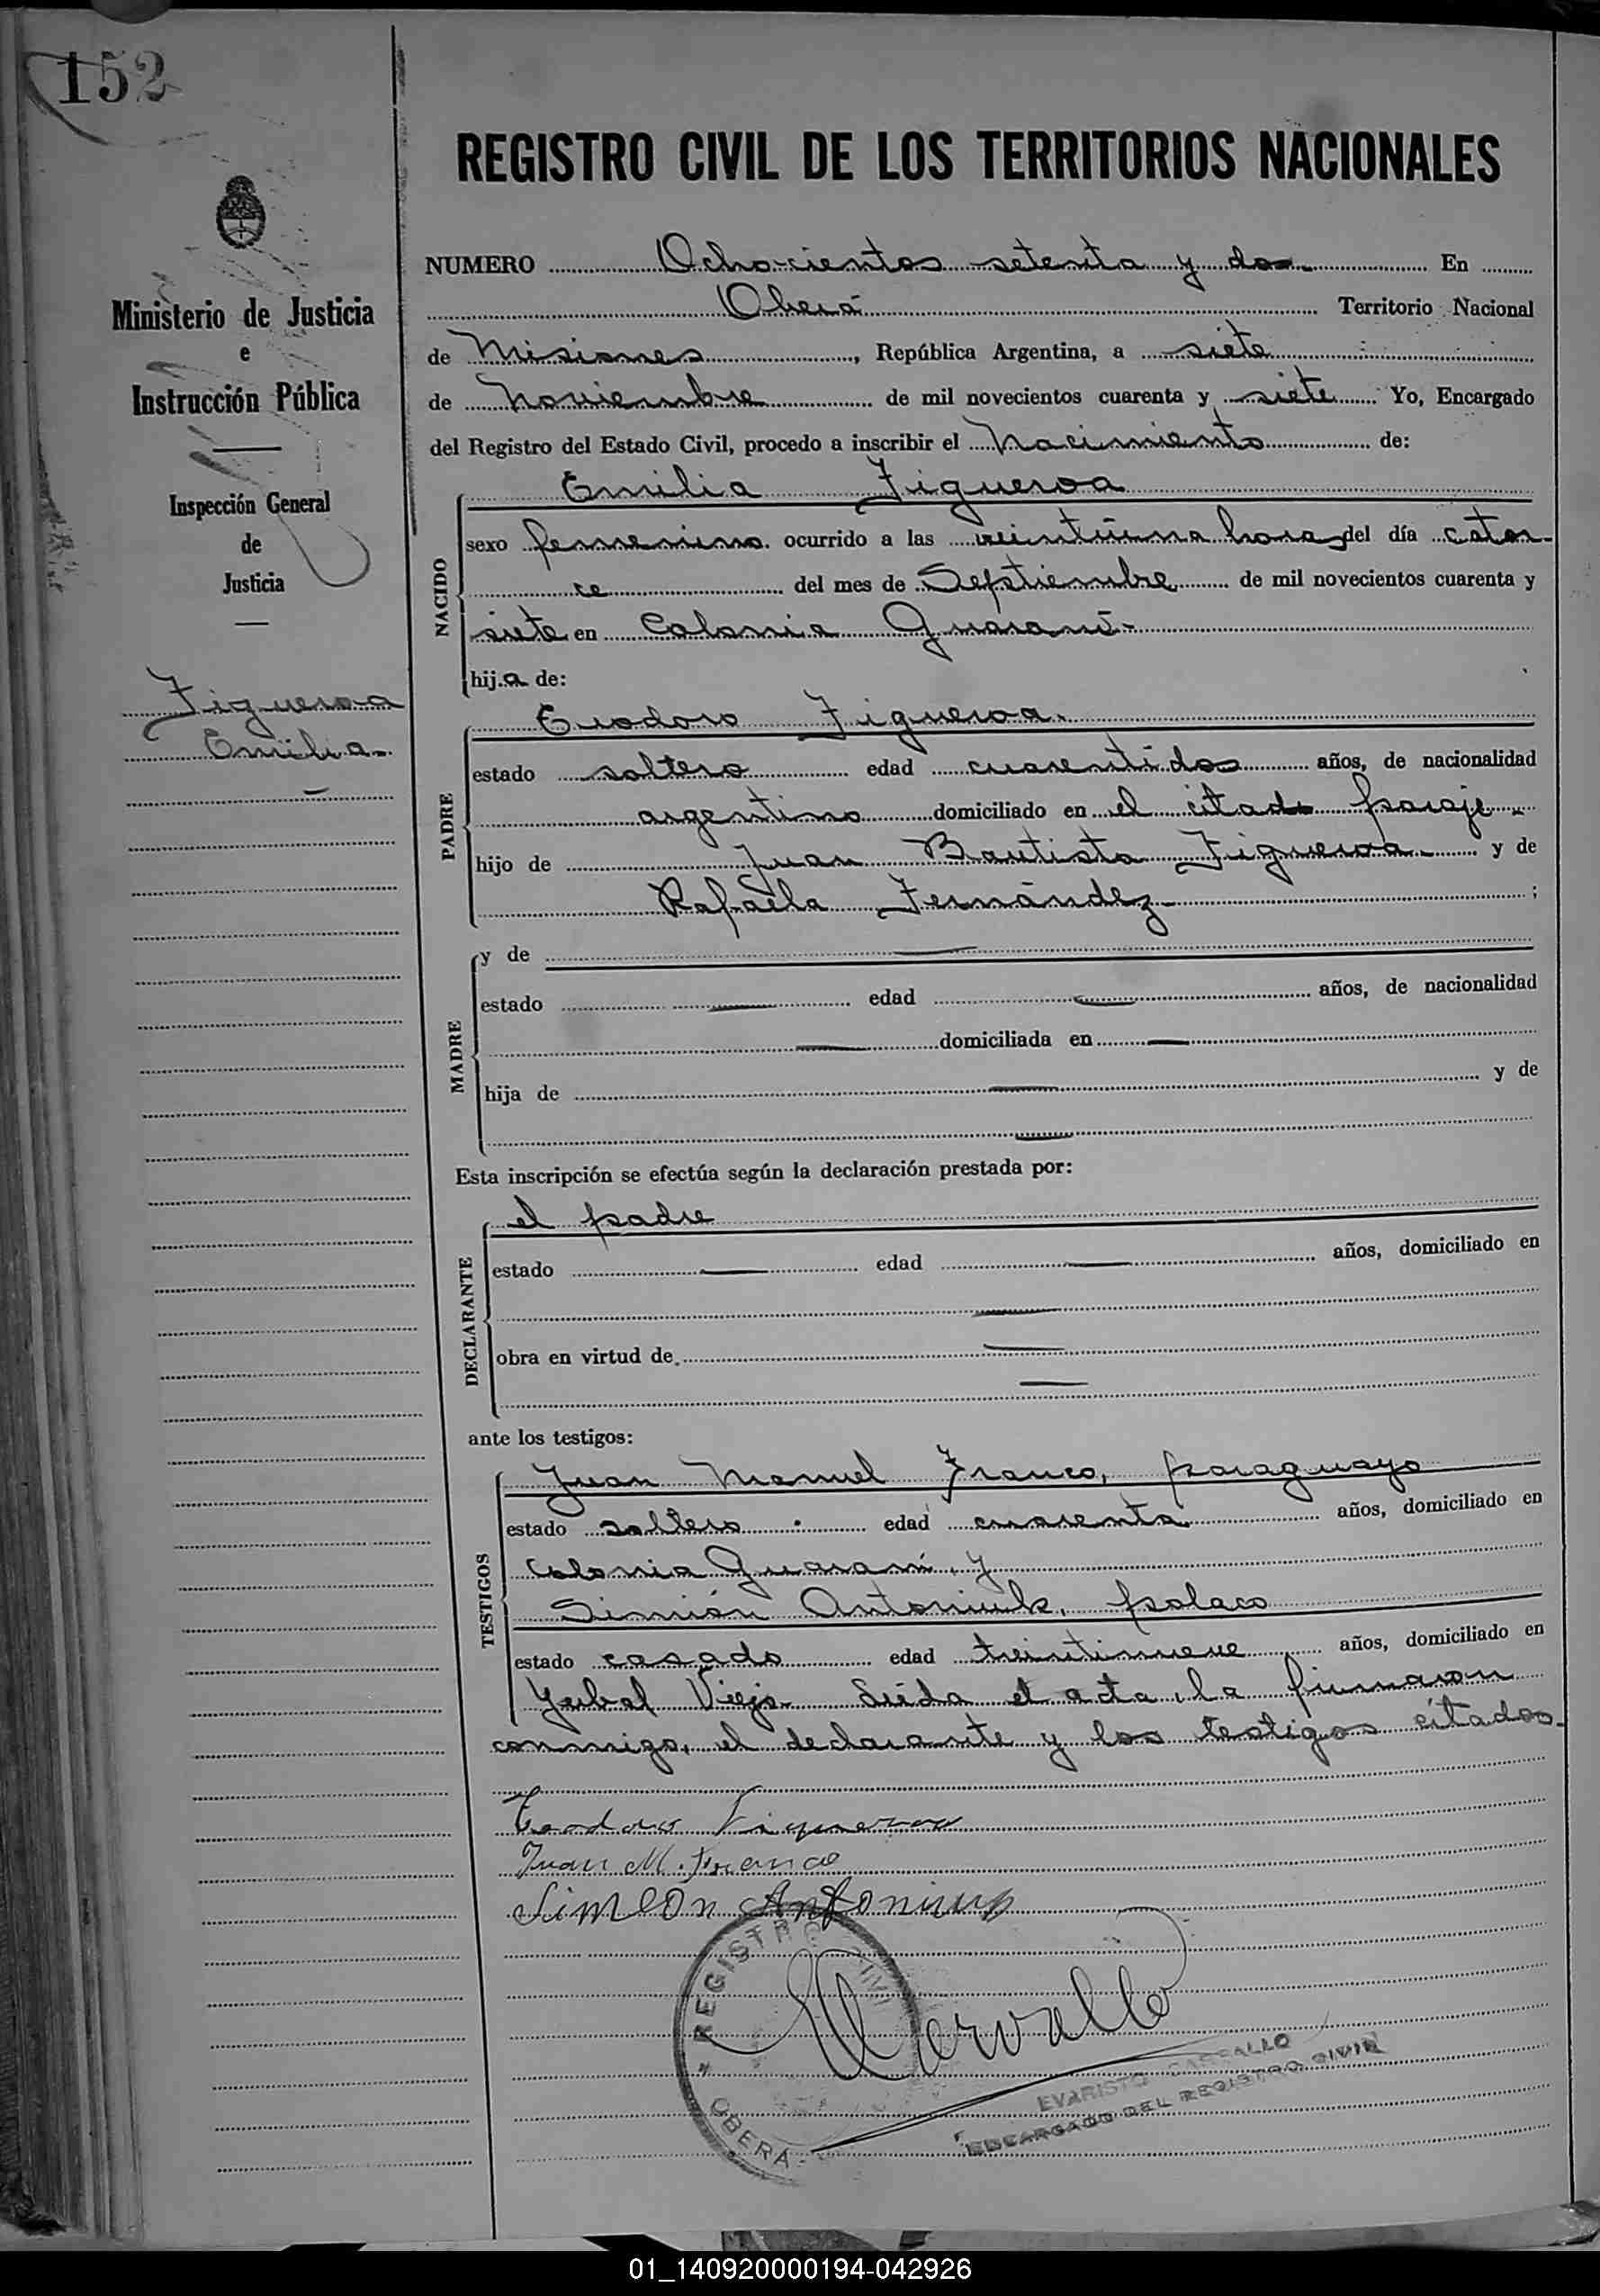 152
REGISTRO CIVIL DE LOS TERRITORIOS NACIONALES
Ministerio de Justicia
e
Instrucción Pública
Inspección General
de
Justicia
Figueroa
Emilia
NUMERO Ochocientos setenta y dos En
Oberá Territorio Nacional
de Misiones, República Argentina, a siete
de Noviembre de mil novecientos cuarenta y siete Yo, Encargado
del Registro del Estado Civil, procedo a inscribir el Nacimiento de:
NACIDO
Emilia Figueroa
sexo femenino ocurrido a las veintiuna horas del día cator-
ce del mes de Septiembre de mil novecientos cuarenta y
siete en Colonia Guaraní-
hija de:
PADRE
Eudoro Figueroa.
estado soltero edad cuarentidos años, de nacionalidad
argentino domiciliado en el citado paraje
hijo de Juan Bautista Figueroa y de
Rafaela Fernández ;
MADRE
y de —
estado — edad — años, de nacionalidad
— domiciliada en —
hija de — y de
—
Esta inscripción se efectúa según la declaración prestada por:
DECLARANTE
el padre
estado — edad — años, domiciliado en
—
obra en virtud de. —
—
ante los testigos:
TESTIGOS
Juan Manuel Franco, paraguayo
estado soltero edad cuarenta años, domiciliado en
Colonia Guaraní, y
Simión Antoniuk, polaco
estado casado edad treintinueve años, domiciliado en
Yerbal Viejo leída el acta, la firmaron
conmigo, el declarante y los testigos citados.
Figueroa
Juan M. Franco
Simeon
REGISTRO CIVIL
OBERÁ
Carvallo
EVARISTO CARVALLO
ENCARGADO DEL REGISTRO CIVIL
01_140920000194-042926